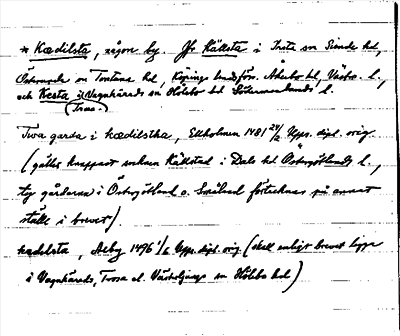 * Kædilsta, någon by. Jfr Källsta i Irsta sn Siende hd,
Östervåla sn Torstuna hd, Köpings landsförs. Åkerbo hd, Västm. l.,
och Kesta i Vagnhärads sn Hölebo hd Södermanlands l.
(Trosa-)
Twa garda i kædilstha, Ekholmen 1481 24/2 Upps. dipl. orig.
(gäller knappast Källstad i Dals hd Östergötlands l.,
ty gårdarna i Östergötland o. Småland förtecknas på annat
ställe i brevet).
kædelsta, Aeby 1496 1/6 Upps. dipl. orig. (skall enligt brevet ligga
i Vagnhärads, Trosa el. Västerljungs sn Hölebo hd)